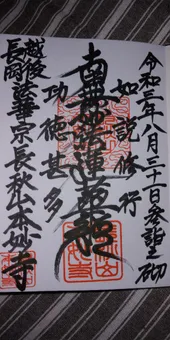 令和三年八月三十一日参詣之砌
如説修行
南無妙法蓮華経
功徳甚多
越後
長岡 法華宗 長秋山本妙寺